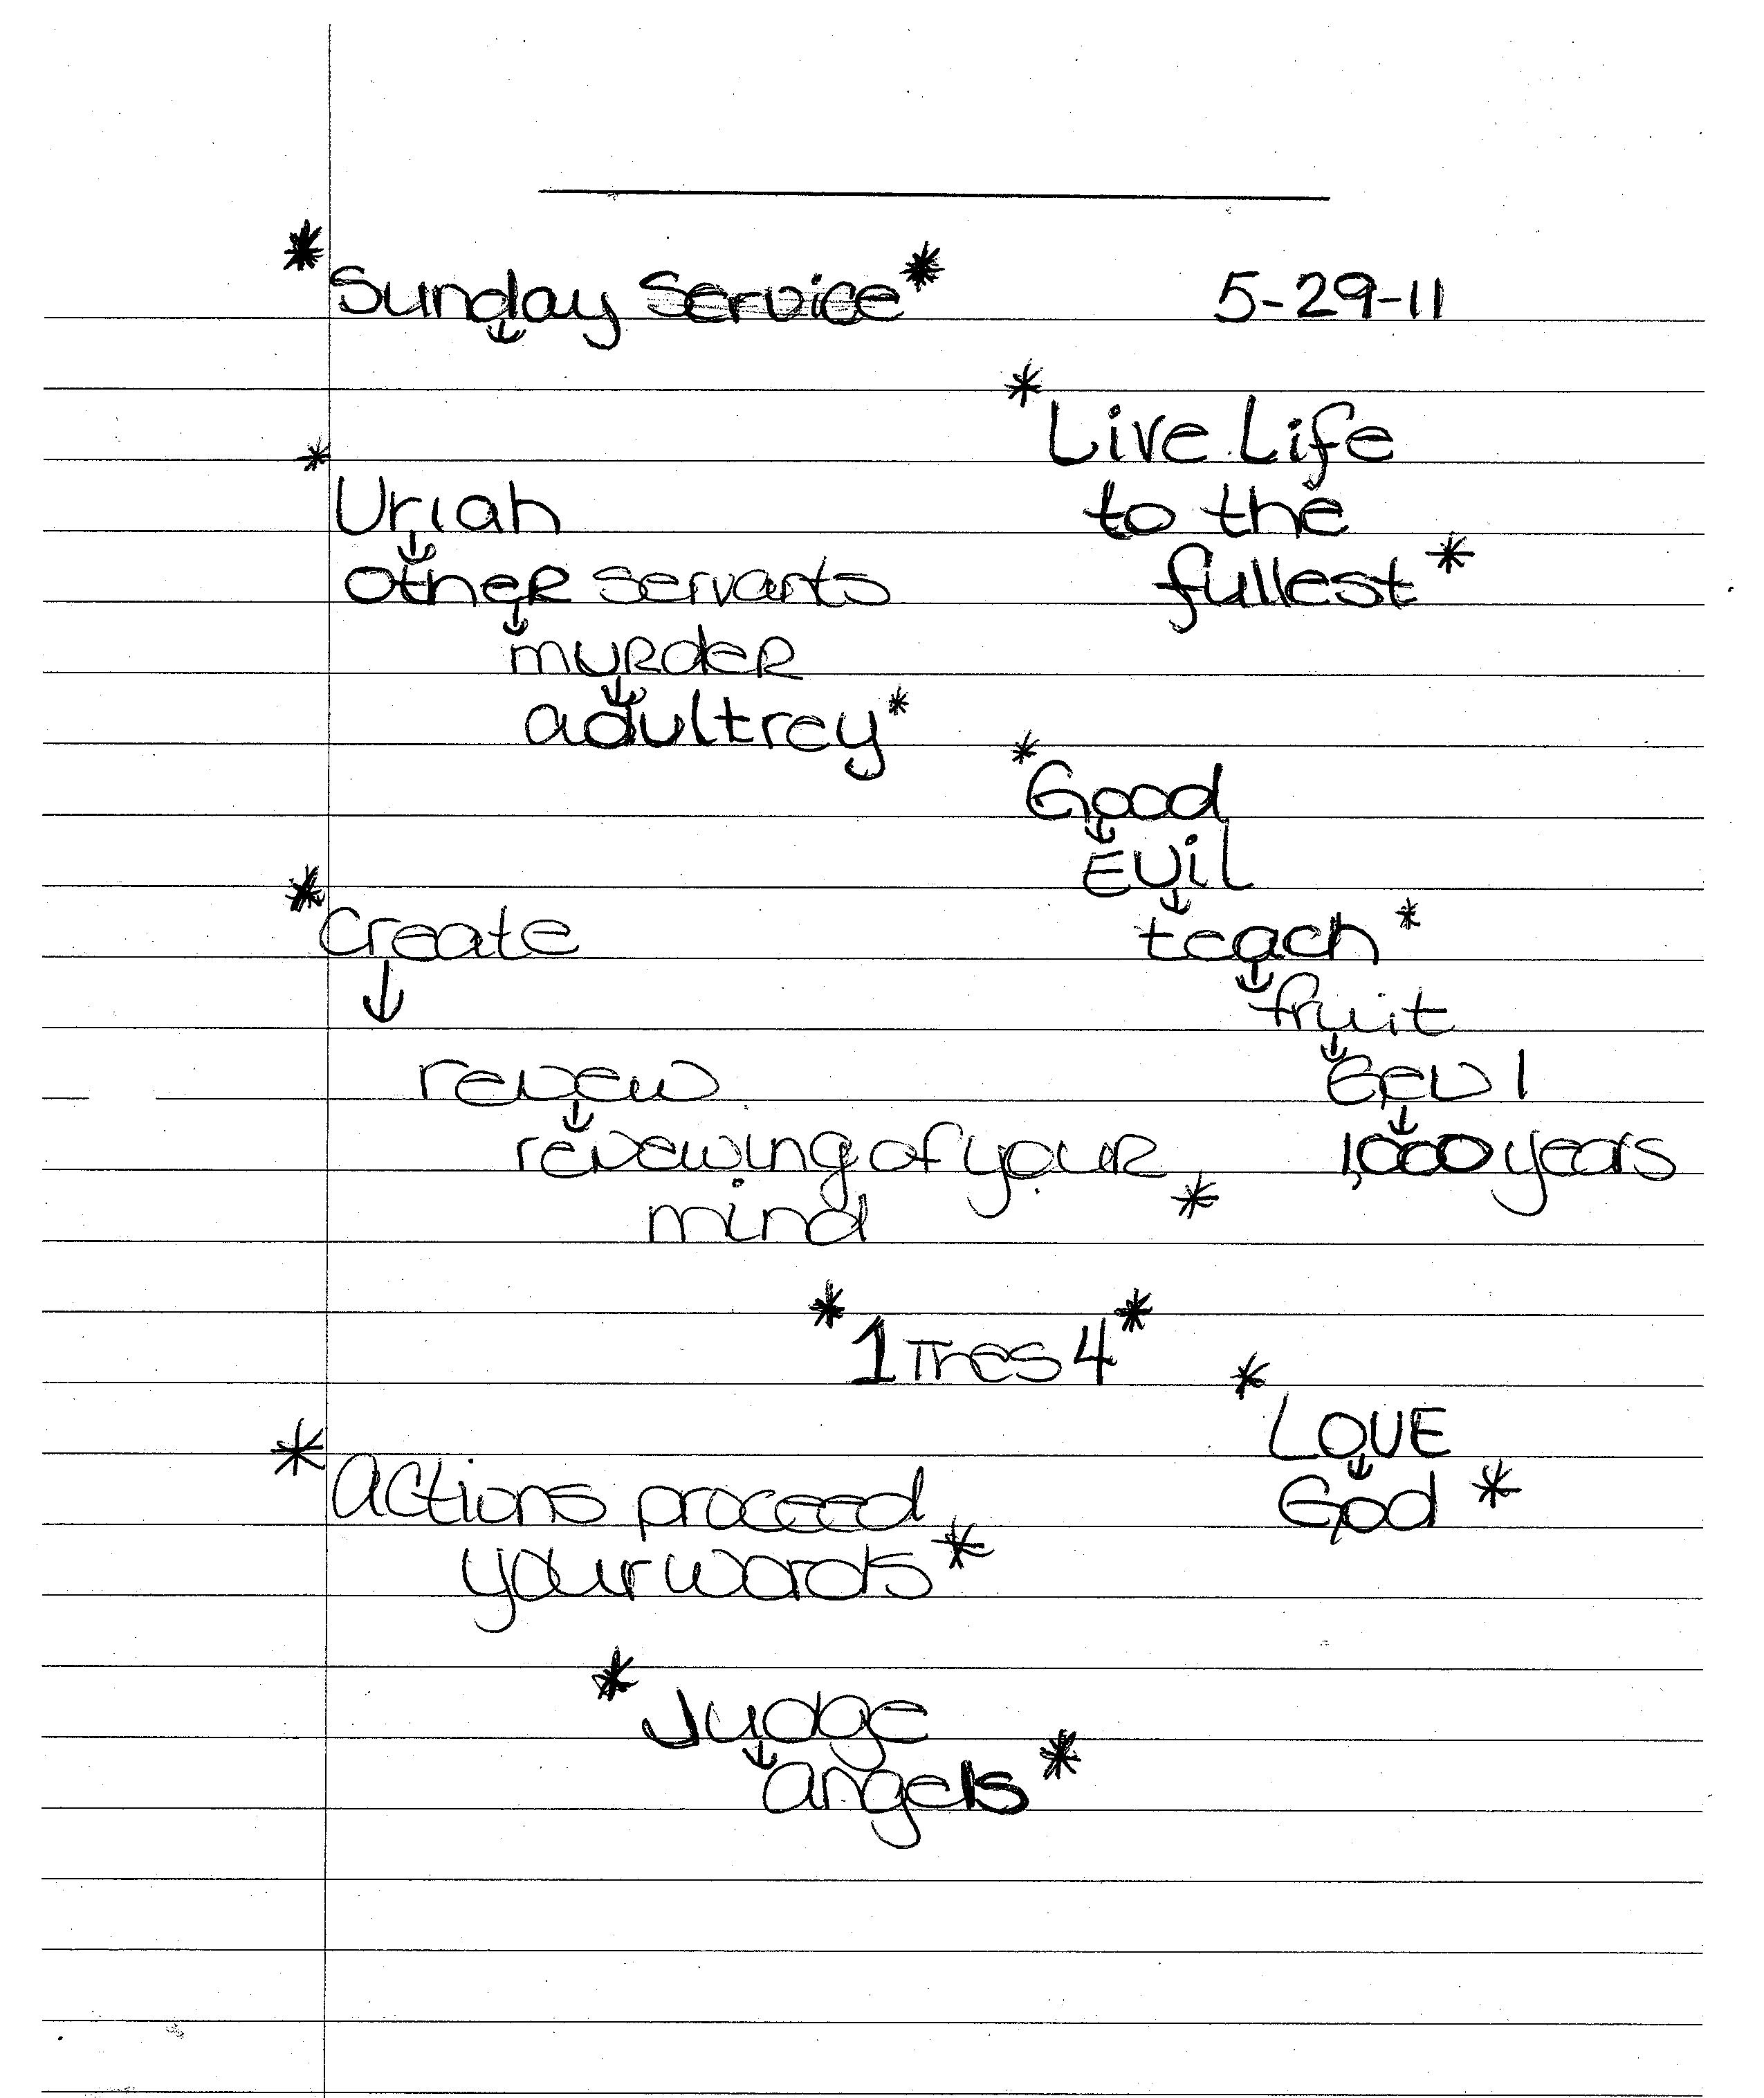 *Sunday Service* 5-29-11
↓
*Live Life
to the
fullest*
*Uriah
↓
other servants
↓
murder
↓
adultrey*
*Good
↓
Evil
↓
teach*
↓
fruit
↓
Gen 1
↓
1,000 years
*Create
↓
renew
↓
renewing of your
mind *
*1 Thes 4*
*Love
↓
God*
*Actions proceed
your words*
*Judge
↓
angels*